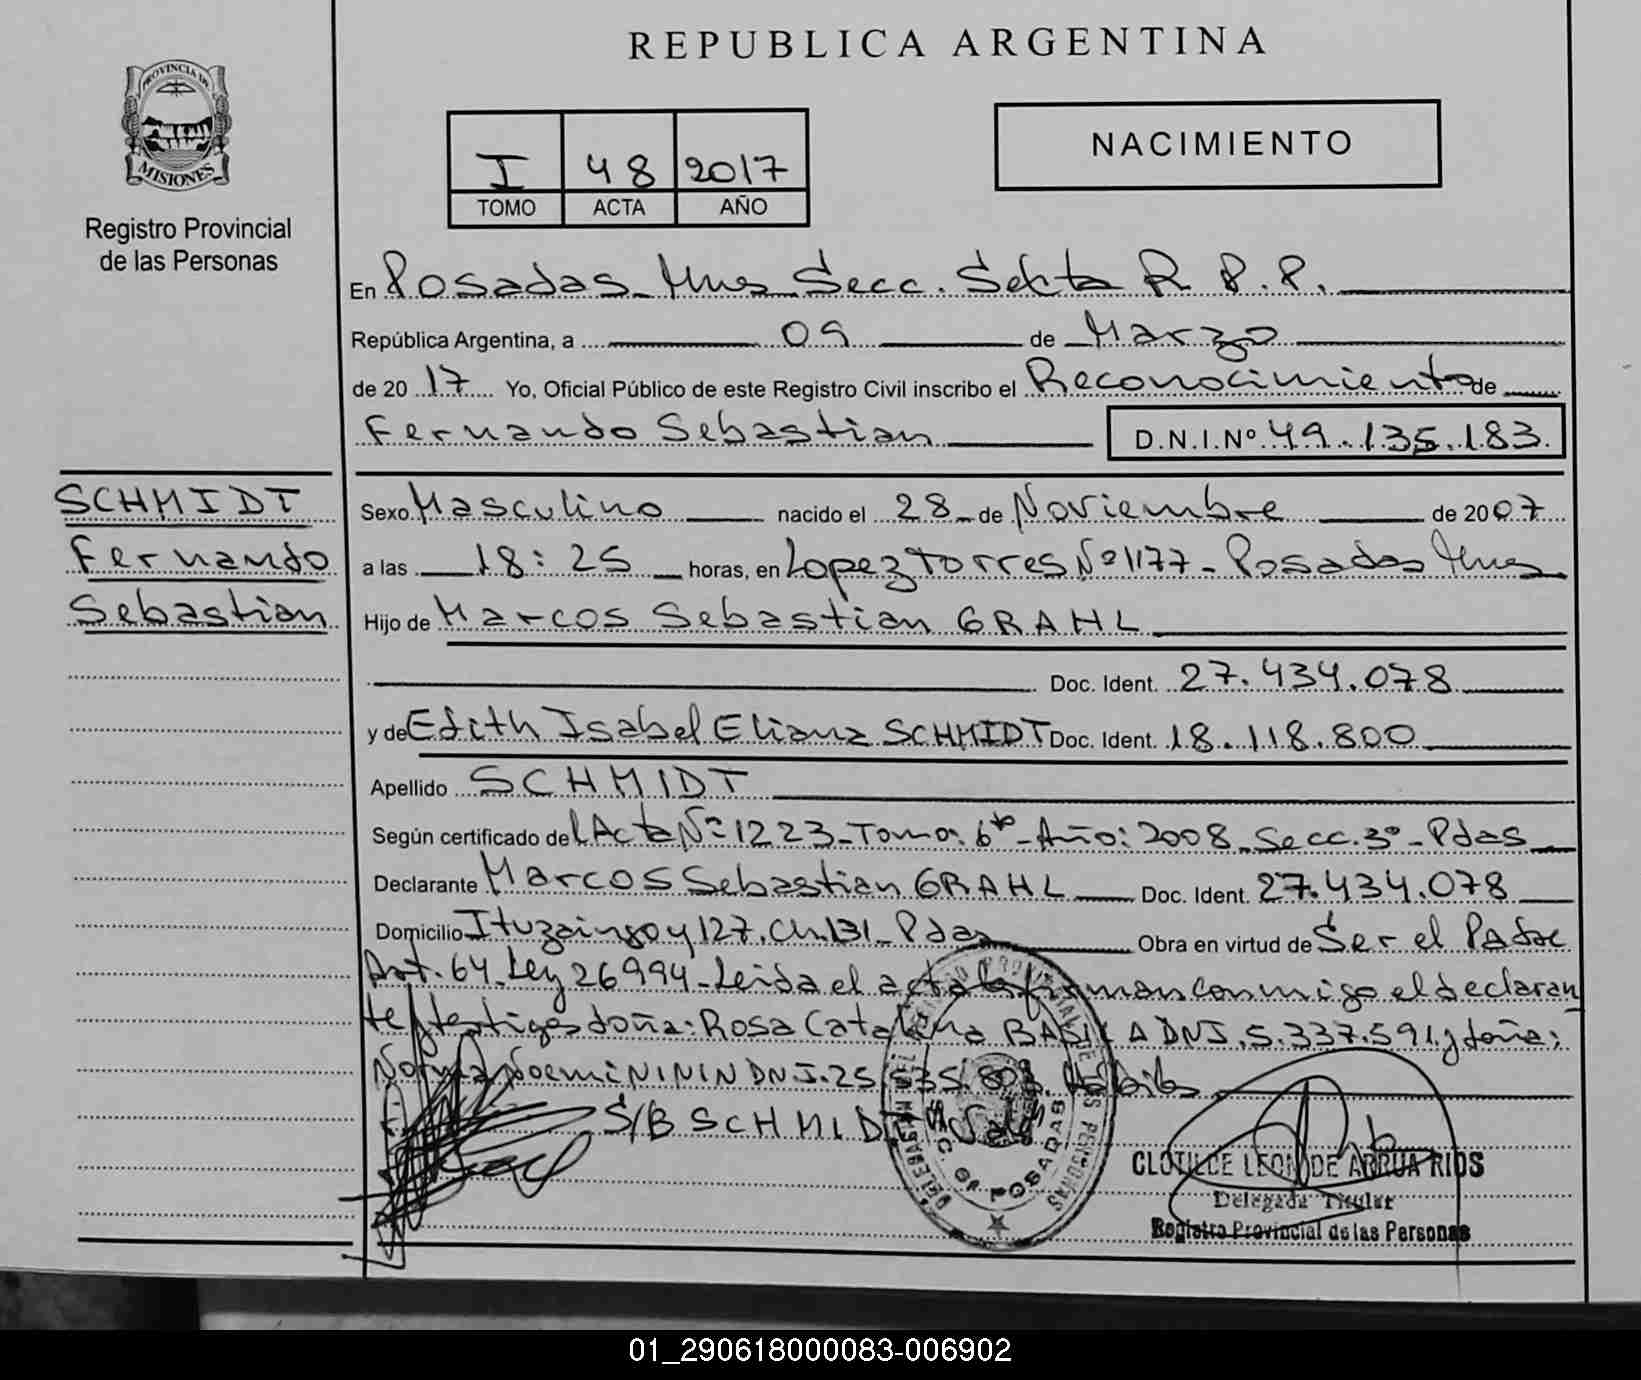 REPUBLICA ARGENTINA
PROVINCIA DE
MISIONES
Registro Provincial
de las Personas
I 48 2017
TOMO ACTA AÑO
NACIMIENTO
En Posadas Mnes Secc. Sexta R.P.P.
República Argentina, a 09 de Marzo
de 2017 Yo, Oficial Público de este Registro Civil inscribo el Reconocimiento de
Fernando Sebastian D.N.I.Nº 49.135.183.
SCHMIDT
Fernando
Sebastian
Sexo Masculino nacido el 28 de Noviembre de 2007
a las 18:25 horas, en Lopez Torres Nº 1177 - Posadas Mnes
Hijo de Marcos Sebastian GRAHL
Doc. Ident. 27.434.078
y de Edith Isabel Eliana SCHMIDT Doc. Ident. 18.118.800
Apellido SCHMIDT
Según certificado del Acta Nº 1223 - Tomo: 6to - Año: 2008 - Secc. 3º - Pdas
Declarante Marcos Sebastian GRAHL Doc. Ident. 27.434.078
Domicilio Ituzaingo y 127. Ch. 131 - Pdas Obra en virtud de Ser el Padre
Art. 64 Ley 26994 - Leida el acta la firman conmigo el declaran
te y testigos doña: Rosa Catalina DNI. 5.337.591 y doña:
Norma Noemi NININ DNI. 25.535.803. Habiles
S/B SCHMIDT Vale
SECC. 6ª POSADAS
CLOTILDE LEON DE ARRUA RIOS
Delegada Titular
Registro Provincial de las Personas
01_290618000083-006902